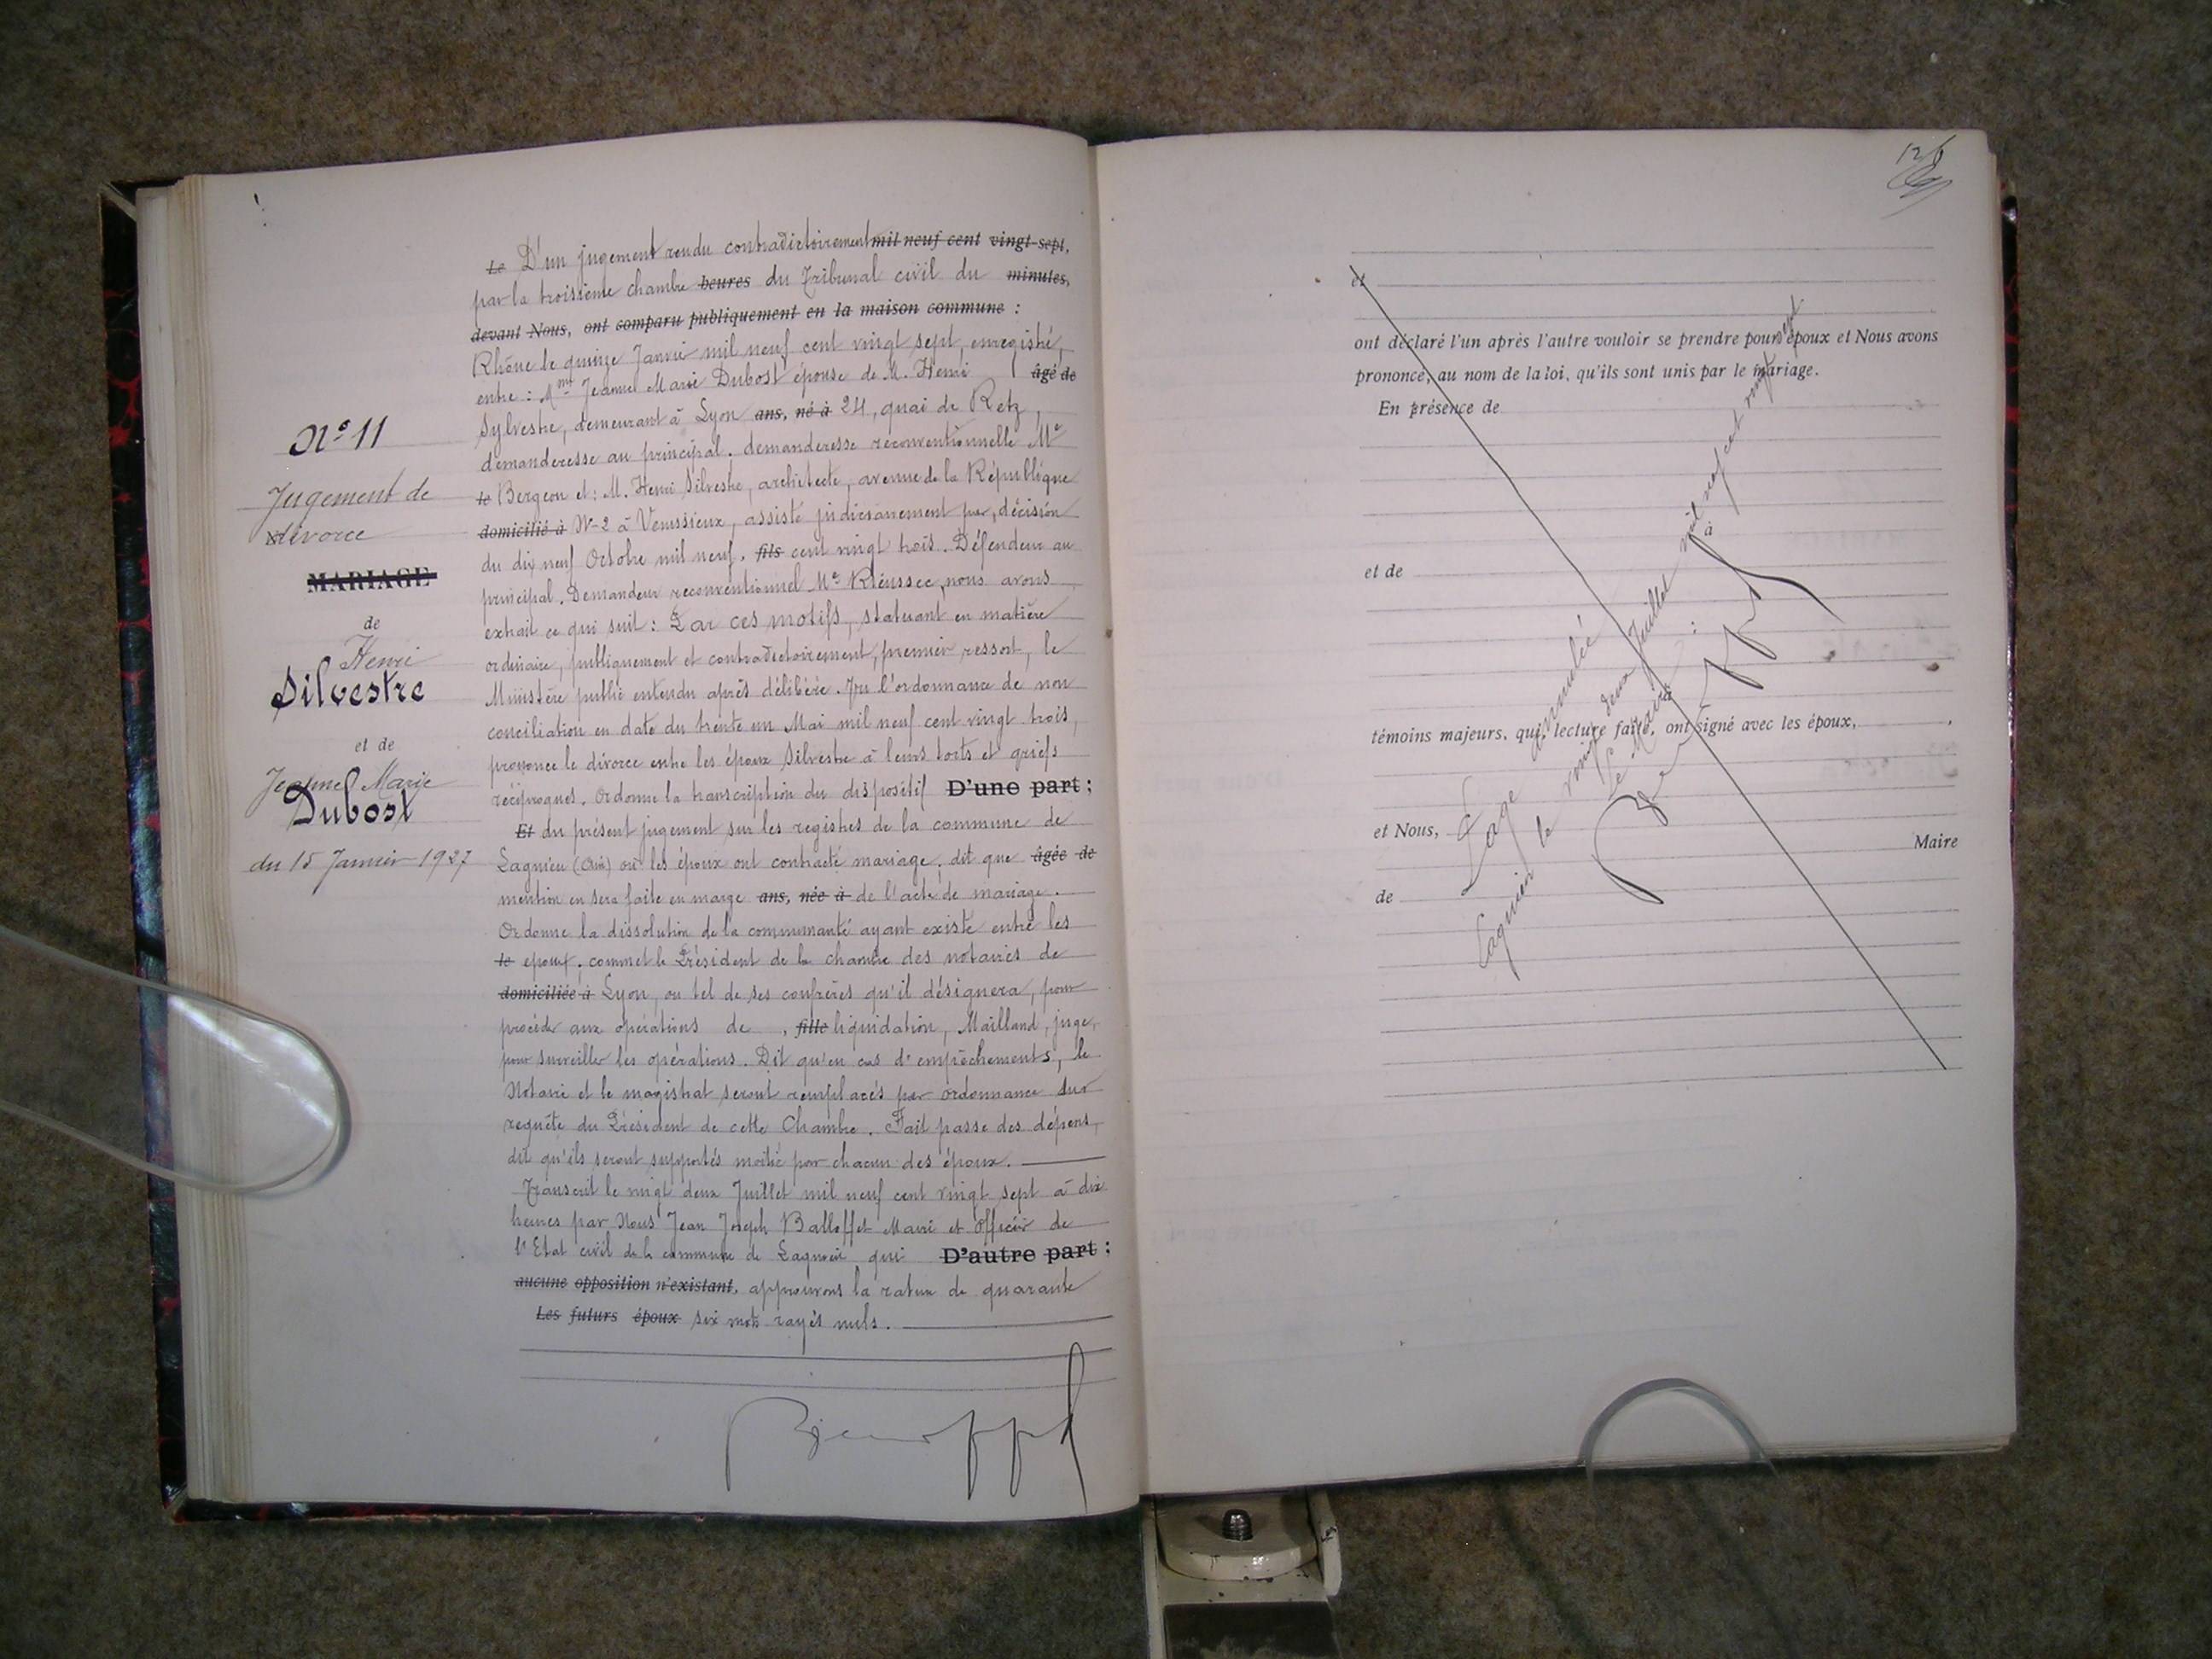 N° 11
Jugement de
divorce
MARIAGE
de
Henri
Silvestre
et de
Jeanne Marie
Dubost
du 15 Janvier 1927
Le D'un jugement rendu contradictoirement mil neuf cent vingt-sept,
par la troisième chambre heures du Tribunal civil du minutes,
devant Nous, ont comparu publiquement en la maison commune :
Rhône le quinze Janvier mil neuf cent vingt sept, enregistré,
entre : Mme Jeanne Marie Dubost épouse de M. Henri âgé de
Sylvestre, demeurant à Lyon ans, né à 24, quai de Retz,
demanderesse au principal. demanderesse reconventionnelle Me
le Bergeon et : M. Henri Silvestre, architecte, avenue de la République
domicilié à N-2 à Venissieux, assisté judiciairement par décision
du dix neuf Octobre mil neuf, fils cent vingt trois. Défendeur au
principal. Demandeur reconventionnel Me Rieussec, nous avons
extrait ce qui suit : Par ces motifs, statuant en matière
ordinaire, publiquement et contradictoirement, premier ressort, le
Ministère public entendu après délibéré. Vu l'ordonnance de non
conciliation en date du trente un Mai mil neuf cent vingt trois,
prononce le divorce entre les époux Silvestre à leurs torts et griefs
réciproques. Ordonne la transcription du dispositif D'une part ;
Et du présent jugement sur les registres de la commune de
Lagnieu (Ain) où les époux ont contracté mariage ; dit que âgée de
mention en sera faite en marge ans, née à de l'acte de mariage.
Ordonne la dissolution de la communauté ayant existé entre les
le epoux, commet le Président de la chambre des notaires de
domiciliée à Lyon, ou tel de ses confrères qu'il désignera, pour
procéder aux opérations de , fille liquidation, Mailland, juge,
pour surveiller les opérations. Dit qu'en cas d'empêchements, le
Notaire et le magistrat seront remplacés par ordonnance sur
requête du Président de cette Chambre. Fait masse des dépens,
dit qu'ils seront supportés moitié par chacun des époux.
Transcrit le vingt deux Juillet mil neuf cent vingt sept à dix
heures par Nous Jean Joseph Balloffet Maire et Officier de
l'Etat civil de la commune de Lagnieu qui D'autre part :
aucune opposition n'existant, approuvons la rature de quarante
Les futurs époux six mots rayés nuls.
et
ont déclaré l'un après l'autre vouloir se prendre pour époux et Nous avons
prononcé, au nom de la loi, qu'ils sont unis par le mariage.
En présence de
à
et de
:
témoins majeurs, qui, lecture faite, ont signé avec les époux,
et Nous,
Maire
de
Page annulée
Lagnieu le vingt deux Juillet mil neuf cent vingt sept
Le Maire